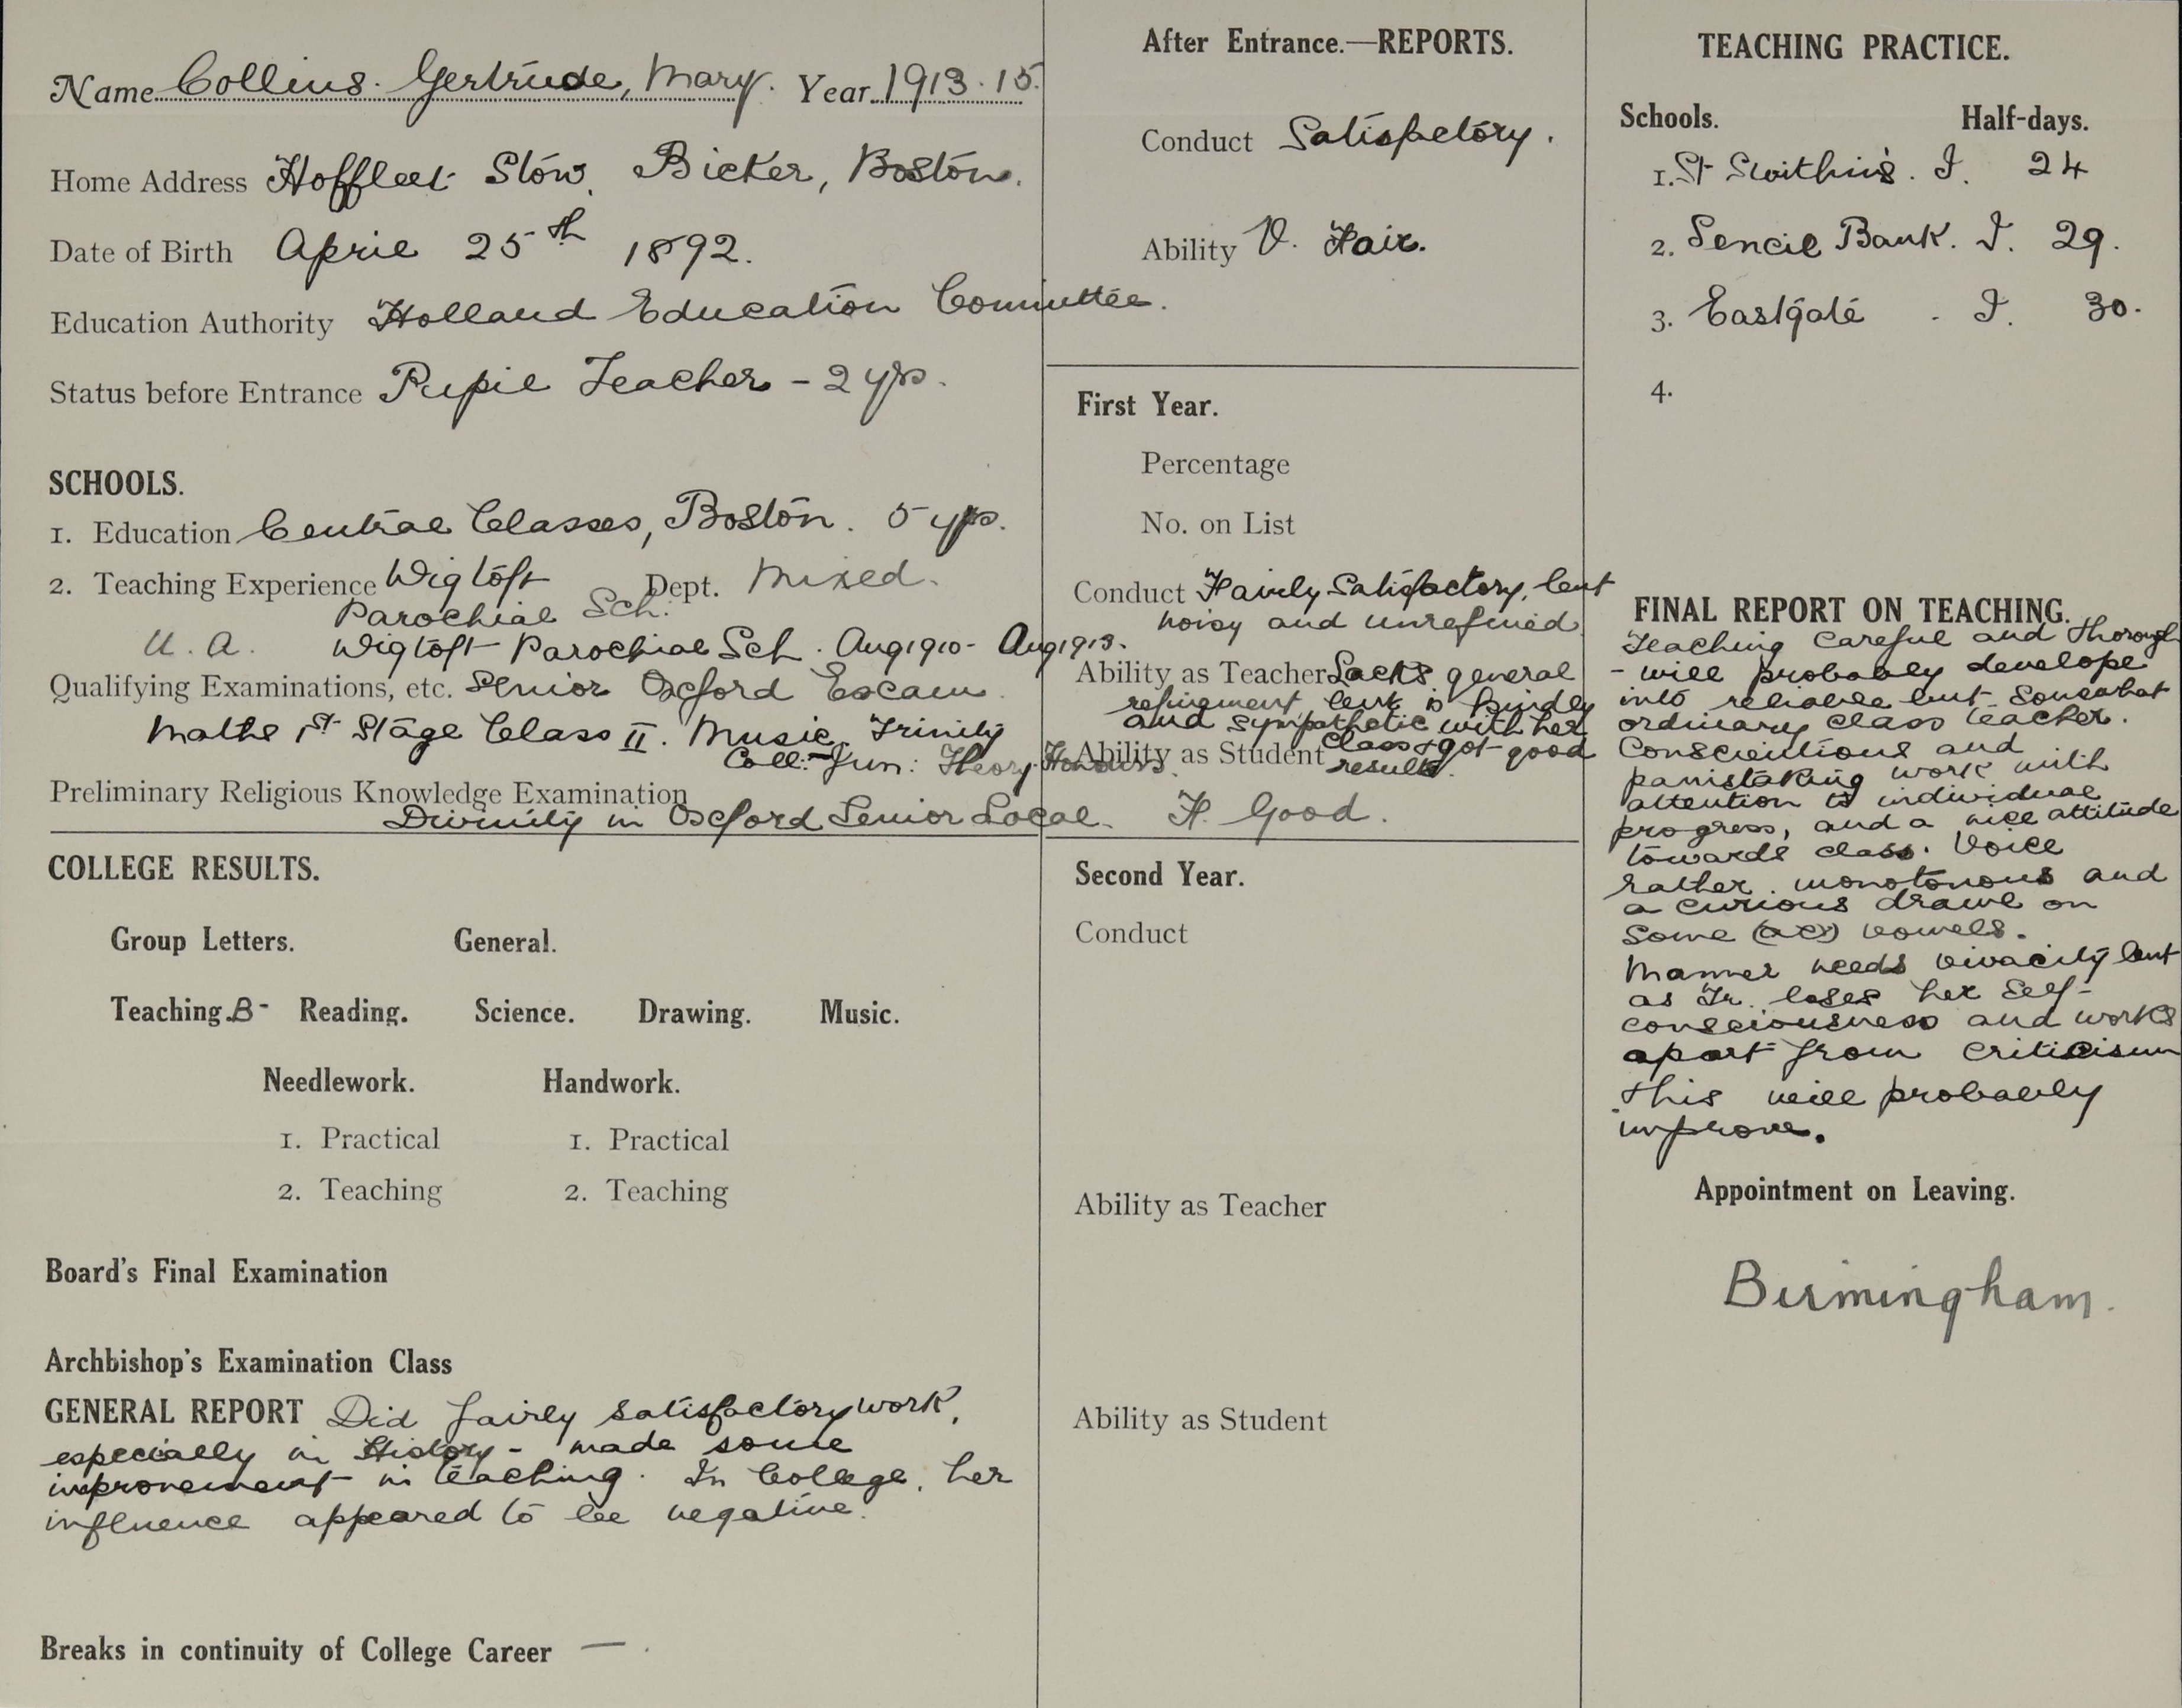 Name Collins. Gertrude, Mary. Year 1913.15.
Home Address Hoffleet Stow, Bicker, Boston.
Date of Birth April 25th 1892.
Education Authority Holland Education Committee.
Status before Entrance Pupil Teacher - 2 yrs.
SCHOOLS.
1. Education Central Classes, Boston. 5 yrs.
2. Teaching Experience Wigtoft Dept. Mixed.
Parochial Sch.
U. A. Wigtoft Parochial Sch. Aug 1910 - Aug 1913.
Qualifying Examinations, etc. Senior Oxford Exam.
Maths 1st Stage Class II. Music. Trinity
Coll: Jun: Theory. Honours.
Preliminary Religious Knowledge Examination
Divinity in Oxford Senior Local.
COLLEGE RESULTS.
Group Letters. General.
Teaching. B- Reading. Science. Drawing. Music.
Needlework. Handwork.
1. Practical 1. Practical
2. Teaching 2. Teaching
Board's Final Examination
Archbishop's Examination Class
GENERAL REPORT Did fairly satisfactory work,
especially in History - made some
improvement in teaching. In College, her
influence appeared to be negative.
Breaks in continuity of College Career — .
After Entrance.—REPORTS.
Conduct Satisfactory.
Ability V. Fair.
First Year.
Percentage
No. on List
Conduct Fairly Satisfactory, but
noisy and unrefined
Ability as Teacher Lacks general
refinement but is kindly
and sympathetic with her
class & got good
Ability as Student results.
F. Good.
Second Year.
Conduct
Ability as Teacher
Ability as Student
TEACHING PRACTICE.
Schools. Half-days.
1. St Swithin's. I. 24
2. Sencil Bank. I. 29.
3. Eastgate . I. 30.
4.
FINAL REPORT ON TEACHING.
Teaching careful and thorough
- will probably develope
into reliable but somewhat
ordinary class teacher.
Conscientious and
painstaking work with
attention to individual
progress, and a nice attitude
towards class. Voice
rather monotonous and
a curious drawl on
some vowels.
Manner needs vivacity but
as Tr. loses her self-
consciousness and works
apart from criticism
this will probably
improve.
Appointment on Leaving.
Birmingham.